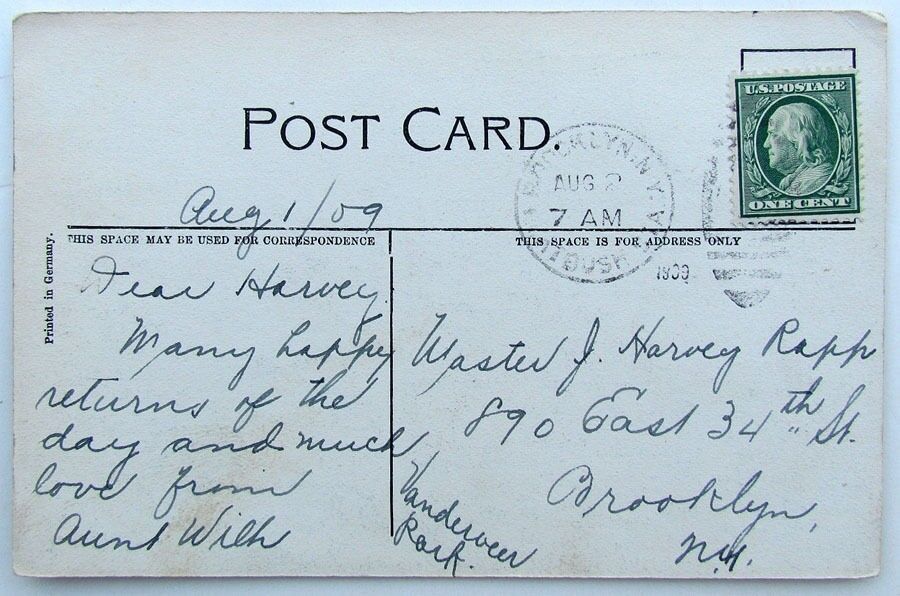 POST CARD.
U.S.POSTAGE
ONE CENT
BROOKLYN, N.Y.
AUG 2
7 AM
1909
FLATBUSH STA.
Aug 1/09
THIS SPACE MAY BE USED FOR CORRESPONDENCE
THIS SPACE IS FOR ADDRESS ONLY
Printed in Germany.
Dear Harvey
Many happy
returns of the
day and much
love from
Aunt Wilh
Master J. Harvey Rapp
890 East 34th St.
Brooklyn,
N.Y.
Vanderveer
Park.